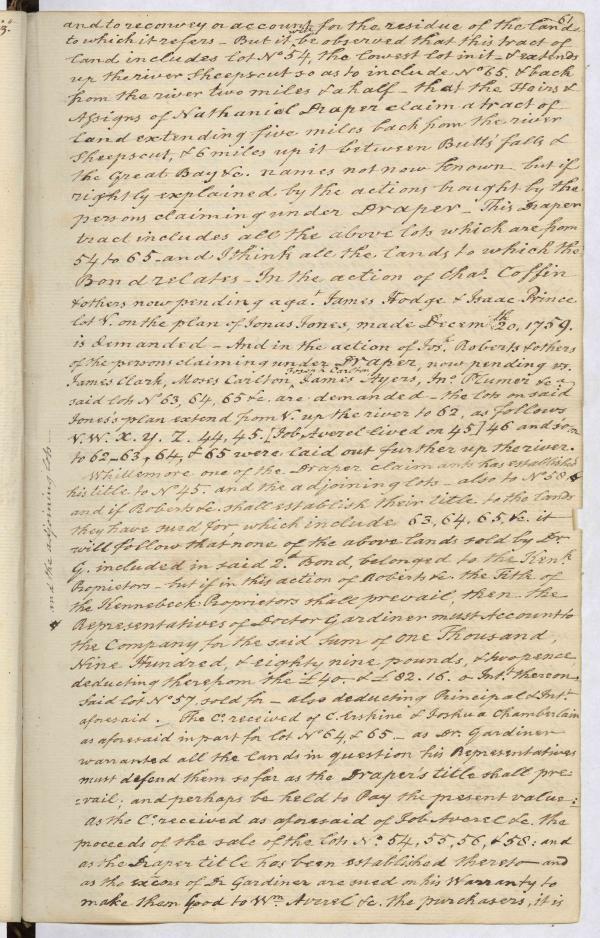 61
and to reconvey or account for the residue of the land
to which it refers – But it will be observed that this tract of
land includes lot No 54, the lowest lot in it – & extends
up the river Sheepscut so as to include No 65, & back
from the river two miles & a half – that the Heirs &
Assigns of Nathaniel Draper claim a tract of
land extending five miles back from the river
Sheepscut, & 6 miles up it between Butts falls &
the Great Bay &c. names not now known but if
rightly explained by the actions brought by the
persons claiming under Draper – This Draper
tract includes all the above lots which are from
54 to 65 – and I think all the lands to which the
Bond relates – In the action of Chas. Coffin
& others now pending agat. James Hodge & Isaac Prince
lot V. on the plan of Jonas Jones, made Decem. 20th, 1759.
is demanded – And in the action of Jos. Roberts & others
of the persons claiming under Draper, now pending vs.
James Clark, Moses Carlton, James Ayers, Jno. Plumer &c
said lots No 63, 64, 65 &c. are demanded – the lots on said
Jones's plan extend from V. up the river to 62, as follows
V. W. X. Y. Z. 44, 45. [Job Averel lived on 45] 46 and so on
to 62 – 63, 64, & 65 were laid out further up the river.
Whittemore one of the Draper claimants has established
his title to No 45. and the adjoining lots – also to No 58
and if Roberts &c. shall establish their title to the lands
they have sued for, which include 63, 64, 65, &c. it
will follow that none of the above lands sold by Dr
G. included in said 2d Bond, belonged to the Kenk.
Proprietors – but if in this action of Roberts &c. the Title of
the Kennebeck Proprietors shall prevail, then the
Representatives of Doctor Gardiner must Account to
the Company for the said Sum of One Thousand,
Nine Hundred, & eighty nine pounds, & two pence,
deducting therefrom the £40. & £82.16.0 Intt. thereon,
said lot No 57, sold for – also deducting Principal & Intt.
aforesaid. The Co. received of C. Erskine & Joshua Chamberlain
as aforesaid in part for lot No 64, & 65 – as Dr. Gardiner
warranted all the lands in question his Representatives
must defend them so far as the Draper's title shall pre-
=vail; and perhaps be held to Pay the present value:
As the Co. received as aforesaid of Job Averel &c. the
proceeds of the sale of the lots No. 54, 55, 56, & 58: and
as the Draper title has been established thereto – and
as the excors of Dr Gardiner are sued on his Warranty to
make them Good to Wm Averel &c. the purchasers, it is
and the adjoining lots –